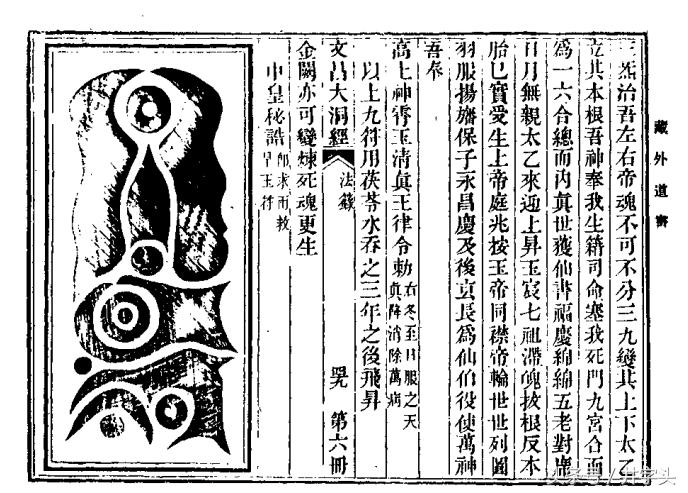 藏外道書
三炁治吾左右帝魂不可不分三九變其上下太乙
立其本根吾神奉我生籍司命塞我死門九宮合而
爲一六合總而內真世獲仙書福慶綿綿五老對塵
日月無親太乙來迎上昇玉宸七祖滯魄拔根反本
胎已實受生上帝庭兆按玉帝同襟帝輪世世列圖
羽服揚旛保子永昌慶及後亰長爲仙伯役使萬神
吾奉
高上神霄玉清眞王律令勅
右冬至日服之天
真降消除萬病
以上九符用茯苓水吞之三年之後飛昇
文昌大洞經
法籙
第六冊
金闕亦可變煉死魂更生
中皇秘誥